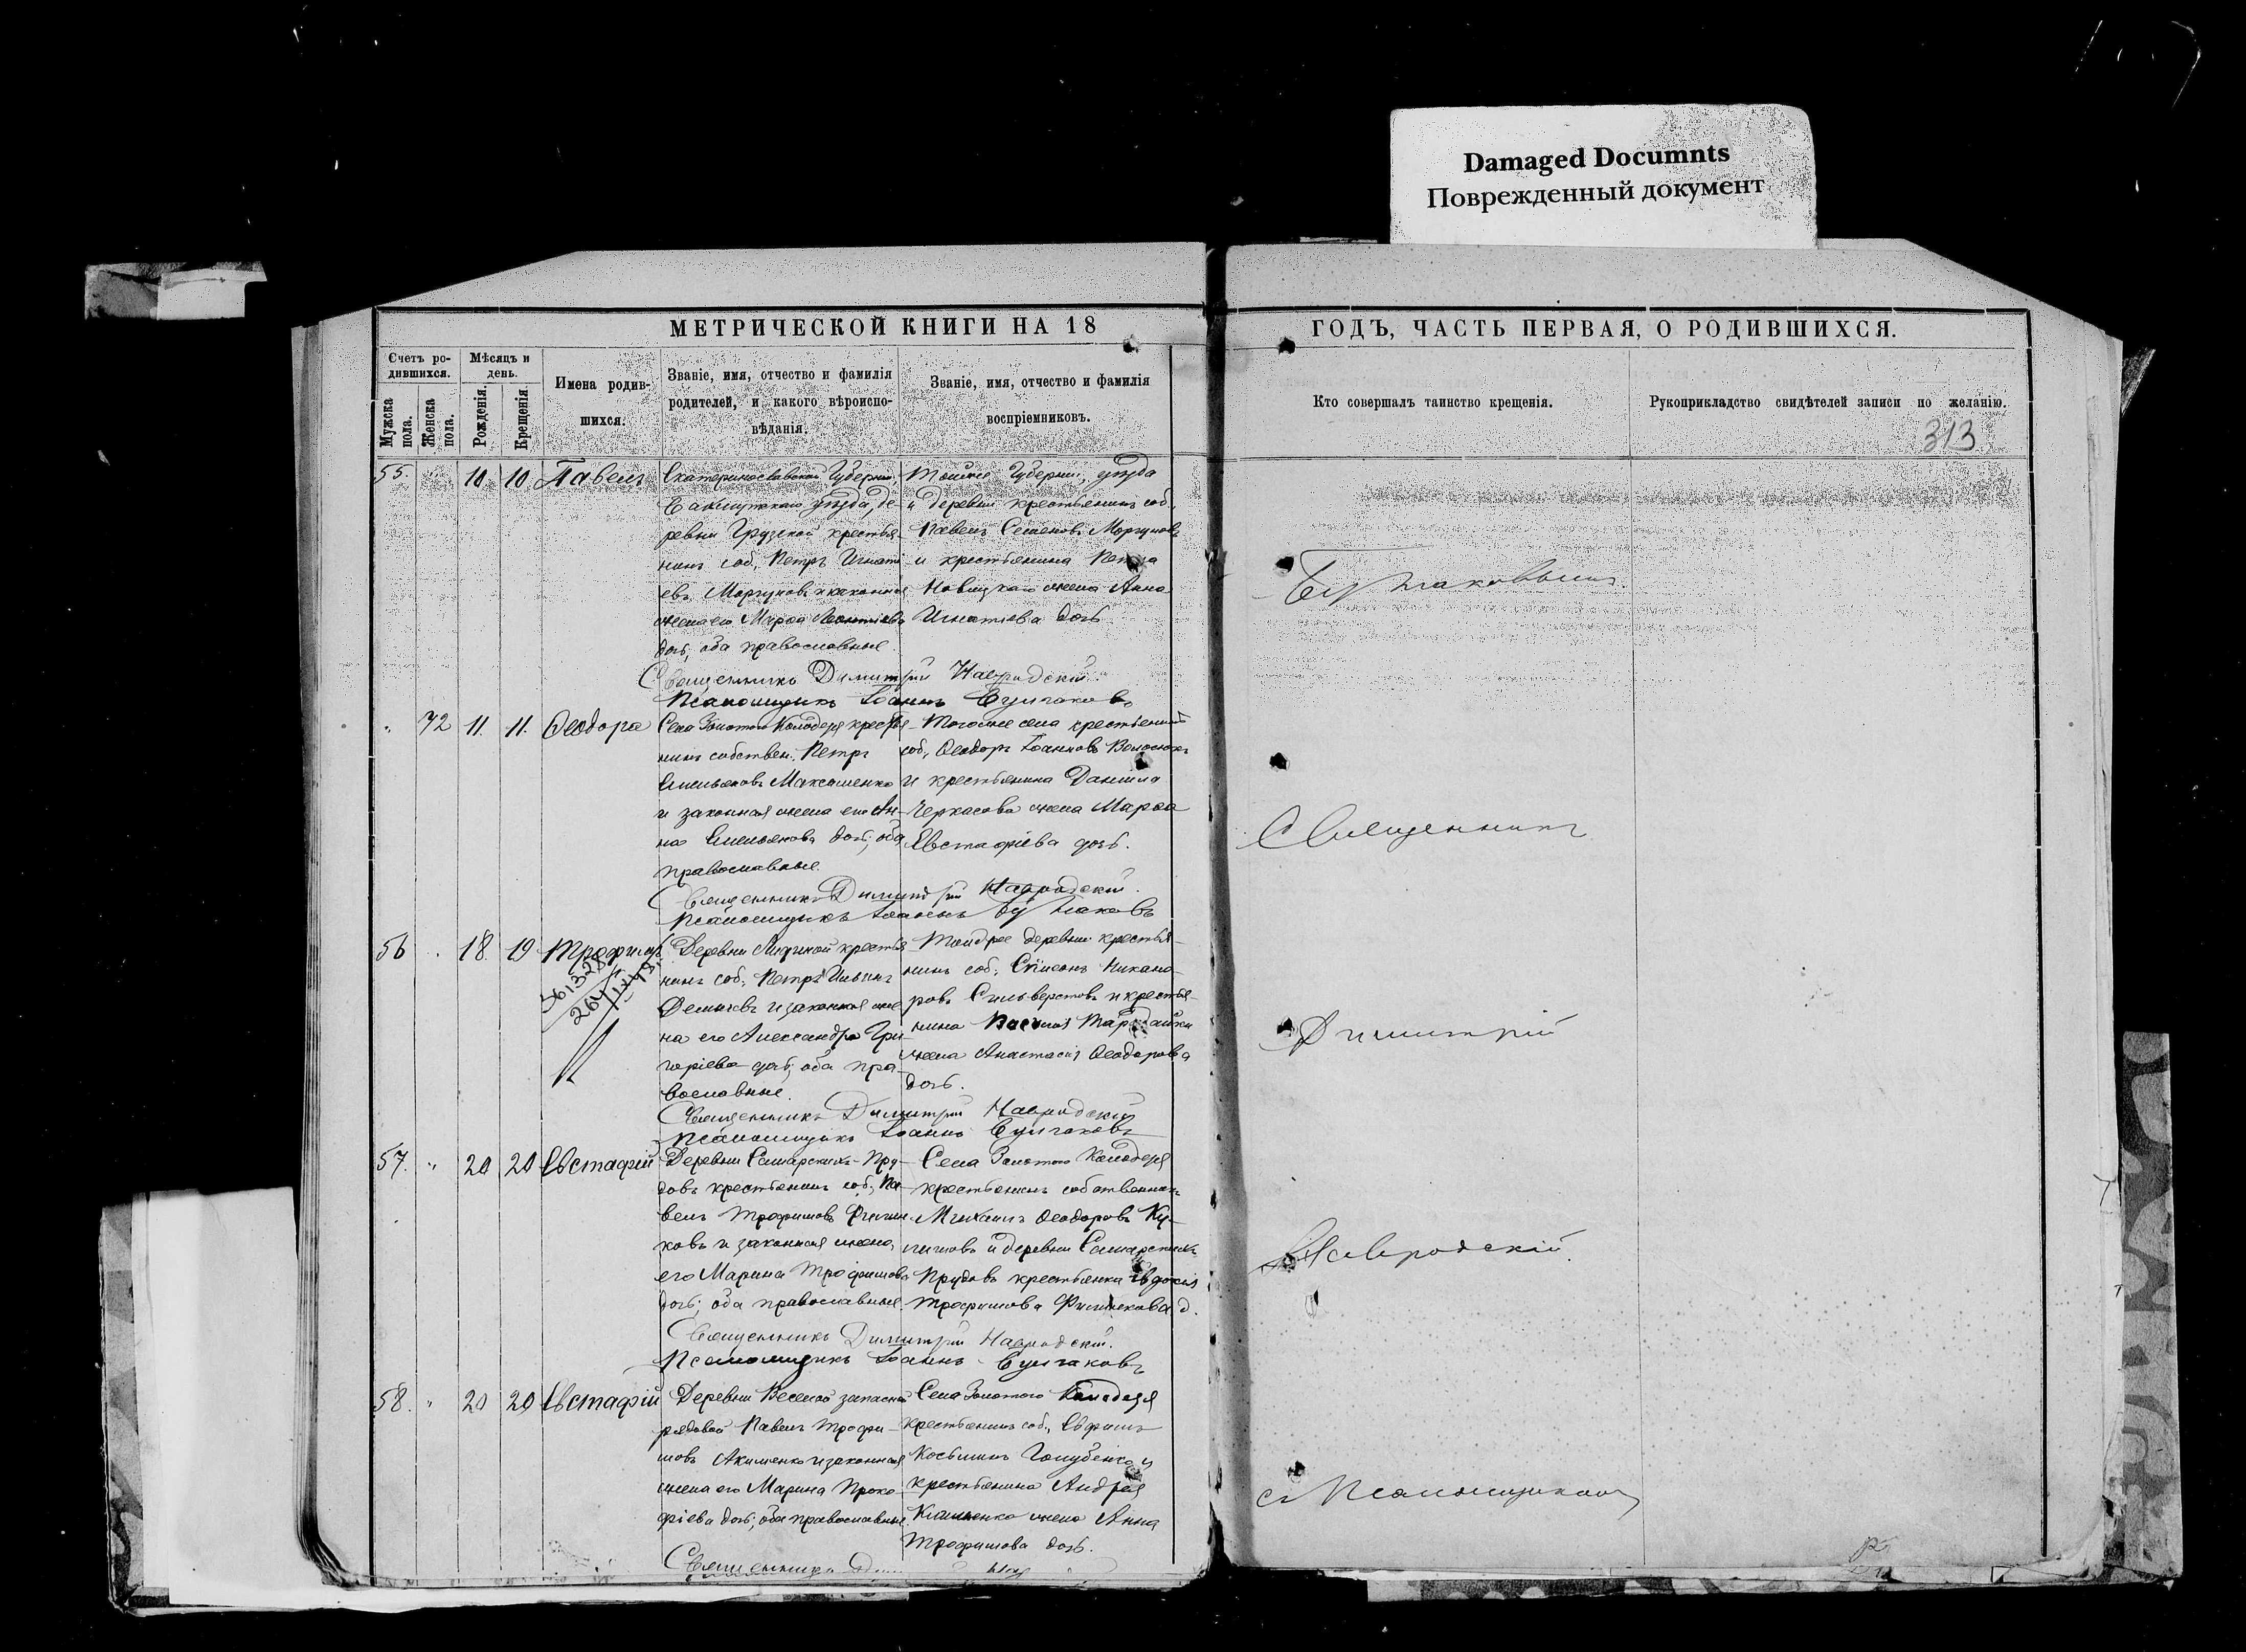 Damaged Documnts
Поврежденный документ
МЕТРИЧЕСКОЙ КНИГИ НА 18
ГОДЪ, ЧАСТЬ ПЕРВАЯ, О РОДИВШИХСЯ.
Счетъ ро-
дившихся.
Мужска
пола.
Женска
пола.
Мѣсяцъ и
день.
Рожденія.
Крещенія
Имена родив-
шихся.
Званіе, имя, отчество и фамилія
родителей, и какого вѣроиспо-
вѣданія.
Званіе, имя, отчество и фамилія
воспріемниковъ.
Кто совершалъ таинство крещенія.
Рукоприкладство свидѣтелей записи по желанію.
313
55. 10 10 Павелъ
Екатеринославской Губерніи,
Бахмутскаго уѣзда, де-
ревни Грузской крестья-
нинъ соб., Петръ Игнаті-
евъ Моргуновъ и законная
жена его Марѳа Леонтіева
дочь, оба православные.
Тойже Губерніи, уѣзда
и деревни крестьянинъ соб.,
Павелъ Семеновъ Моргуновъ
и крестьянина Петра
Новицкаго жена Анна
Игнатіева дочь
Священникъ Димитрій Навродскій
Псаломщикъ Іоаннъ Булгаковъ
" 72 11. 11. Ѳеодора
Села Золотого Колодезя крестья-
нинъ собствен. Петръ
Емельяновъ Максименко
и законная жена его Ан-
на Емельянова дочь, оба
православные.
Тогоже села крестьянинъ
соб., Ѳеодоръ Іоанновъ
и крестьянина Даніила
Черкасова жена Марѳа
Евстафіева дочь.
Священникъ Димитрій Навродскій.
Псаломщикъ Іоаннъ Булгаковъ
56 " 18. 19 Трофимъ
Деревни крестья-
нинъ соб., Петръ
и законная же-
на его Александра Гри-
горіева дочь, оба пра-
вославные.
Тойже деревни крестья-
нинъ соб., Никано-
ровъ Сильверстовъ и крестья-
нина
жена Анастасія Ѳеодорова
дочь.
Священникъ Димитрій Навродскій
Псаломщикъ Іоаннъ Булгаковъ
57. " 20 20 Евстафій
Деревни Самарскихъ-Пру-
довъ крестьянинъ соб., Па-
велъ Трофимовъ
и законная жена
его Марина Трофимова
дочь; оба православные.
Села Золотого Колодезя
крестьянинъ собственникъ
Михаилъ Ѳеодоровъ
и деревни Самарскихъ
Прудовъ крестьянка Евдокія
Трофимова д.
Священникъ Димитрій Навродскій.
Псаломщикъ Іоаннъ Булгаковъ
58. " 20 20 Евстафій
Деревни Веселой запасной
рядовой Павелъ Трофи-
мовъ Акименко и законная
жена его Марина Проко-
фіева дочь, оба православные.
Села Золотого Колодезя
крестьянинъ соб., Ефримъ
Косьминъ Голубенко и
крестьянина Андрея
жена Анна
Трофимова дочь.
Священникъ
Булгаковымъ.
Священникъ
Димитрій
Навродскій.
съ Псаломщикомъ